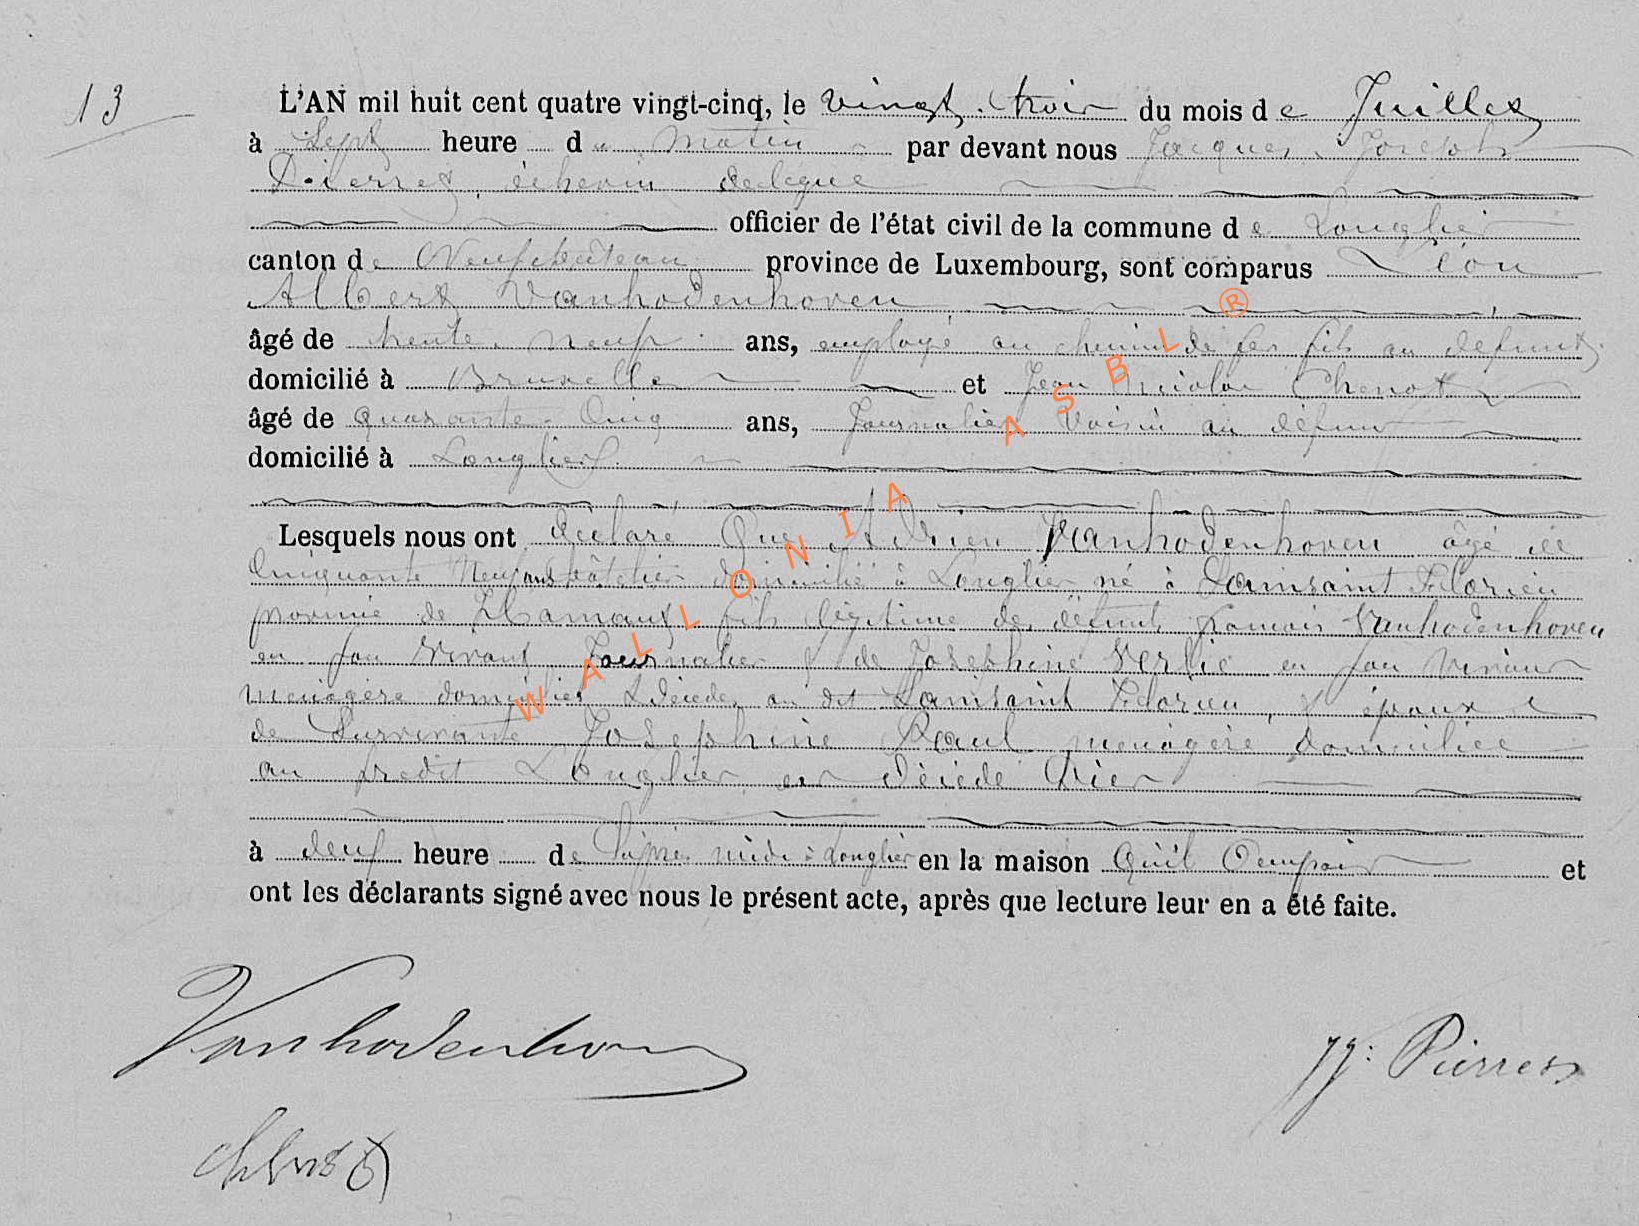 13
L'AN mil huit cent quatre vingt-cinq, le vingt-trois du mois de Juillet
à Sept heure du matin par devant nous Jacques Joseph
Pierret échevin delegué
officier de l'état civil de la commune de Longlier
canton de Neufchâteau province de Luxembourg, sont comparus Léon
Albert Vanhodenhoven
âgé de trente neuf ans, employé au chemin de fer fils au defunt,
domicilié à Bruxelles et Jean Nicolas Chenot
âgé de quarante-Cinq ans, Journalier Voisin au défunt
domicilié à Longlier
Lesquels nous ont déclaré Que Adrien Vanhodenhoven âgé de
Cinquante Neuf ans domicilié à Longlier né à Lamsaint Florieu
province de Hainaut fils légitime de défunt francois Vanhodenhoven
en son vivant Journalier & de Josephine Verlie en son vivant
menagère domiciliés & décédés au dit Lamsaint Florieu, & époux
de Survivante Josephine Paul menagère domiciliée
au predit Longlier est décédé hier
à deux heure de l'après midi à Longlier en la maison Qu'il Occupait et
ont les déclarants signé avec nous le présent acte, après que lecture leur en a été faite.
Vanhodenhoven
JJ: Pierret
Chenot
WALLONIA ASBL ®